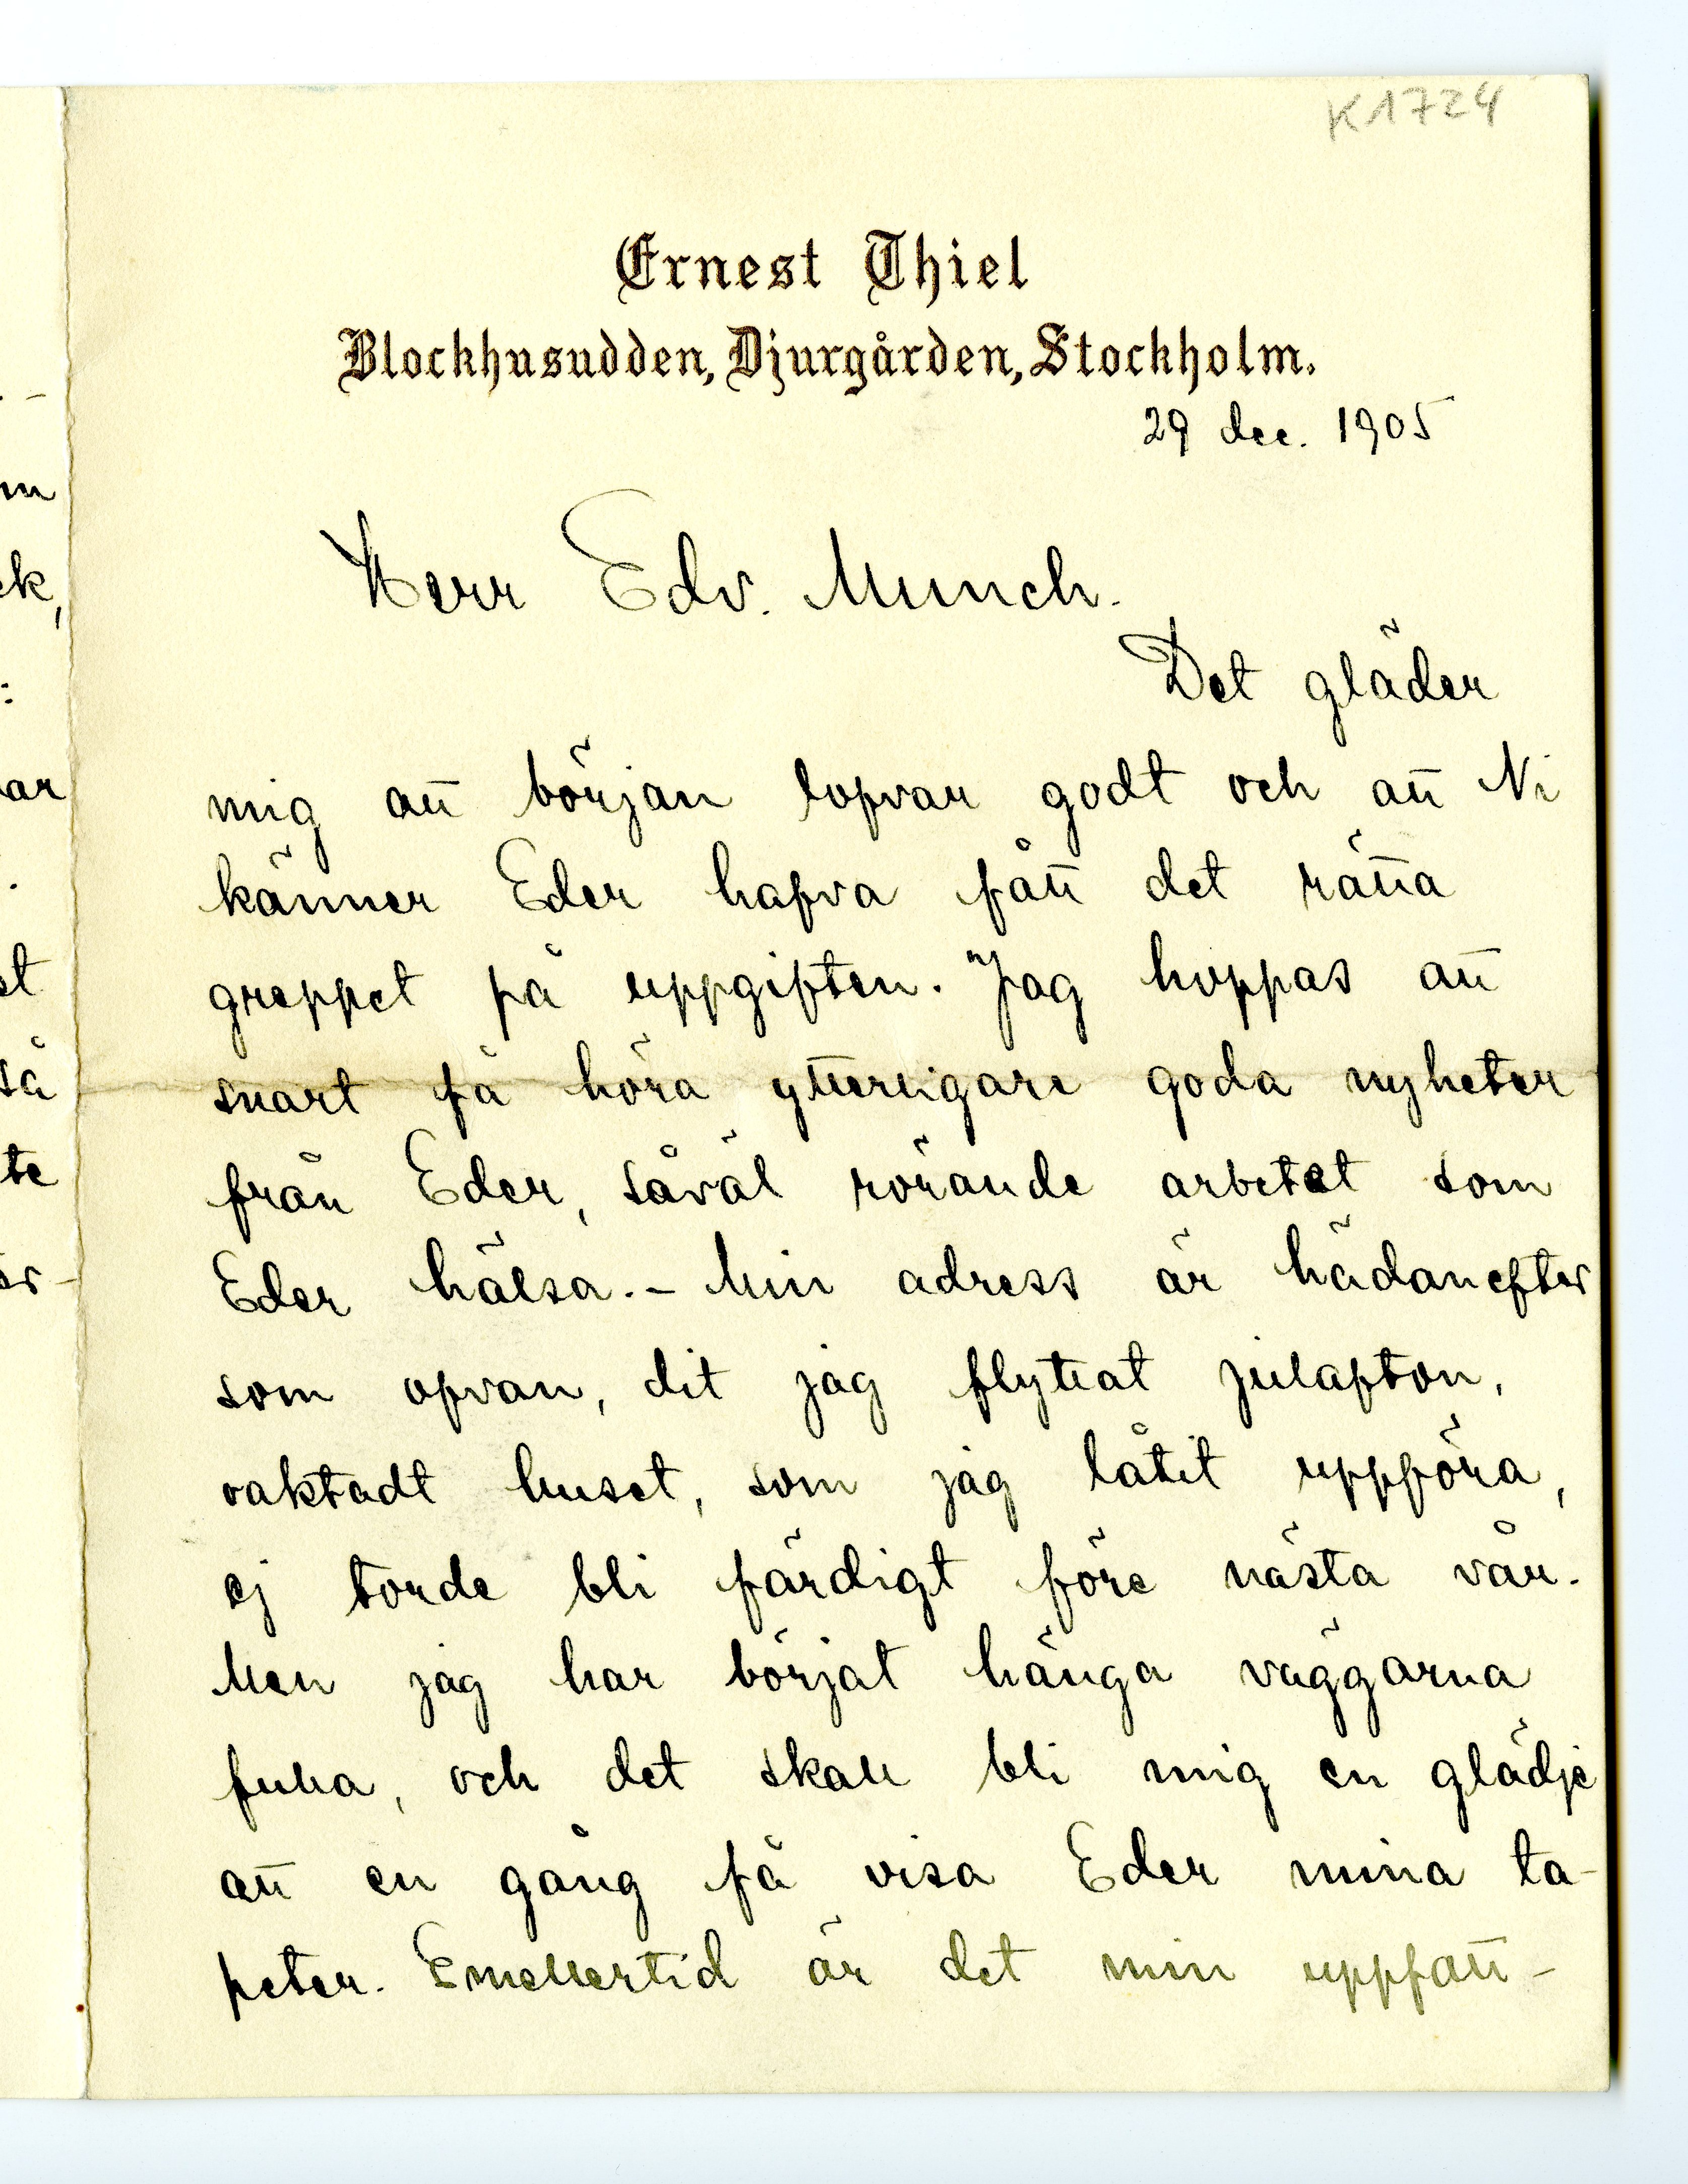 K 1724
Ernest Thiel
Blockhusudden, Djurgården, Stockholm.
29 dec. 1905
Herr Edv. Munch.
Det gläder
mig att början lofvar godt och att Ni
känner Eder hafva fått det rätta
greppet på uppgiften. Jag hoppas att
snart få höra ytterligare goda nyheter
från Eder, såväl rörande arbetet som
Eder hälsa. – Min adress är hädanefter
som ofvan, dit jag flyttat julafton,
oaktadt huset, som jag låtit uppföra,
ej torde bli färdigt före nästa vår.
Men jag har börjat hänga väggarna
fulla, och det skall bli mig en glädje
att en gång få visa Eder mina ta-
peter. Emellertid är det min uppfatt-